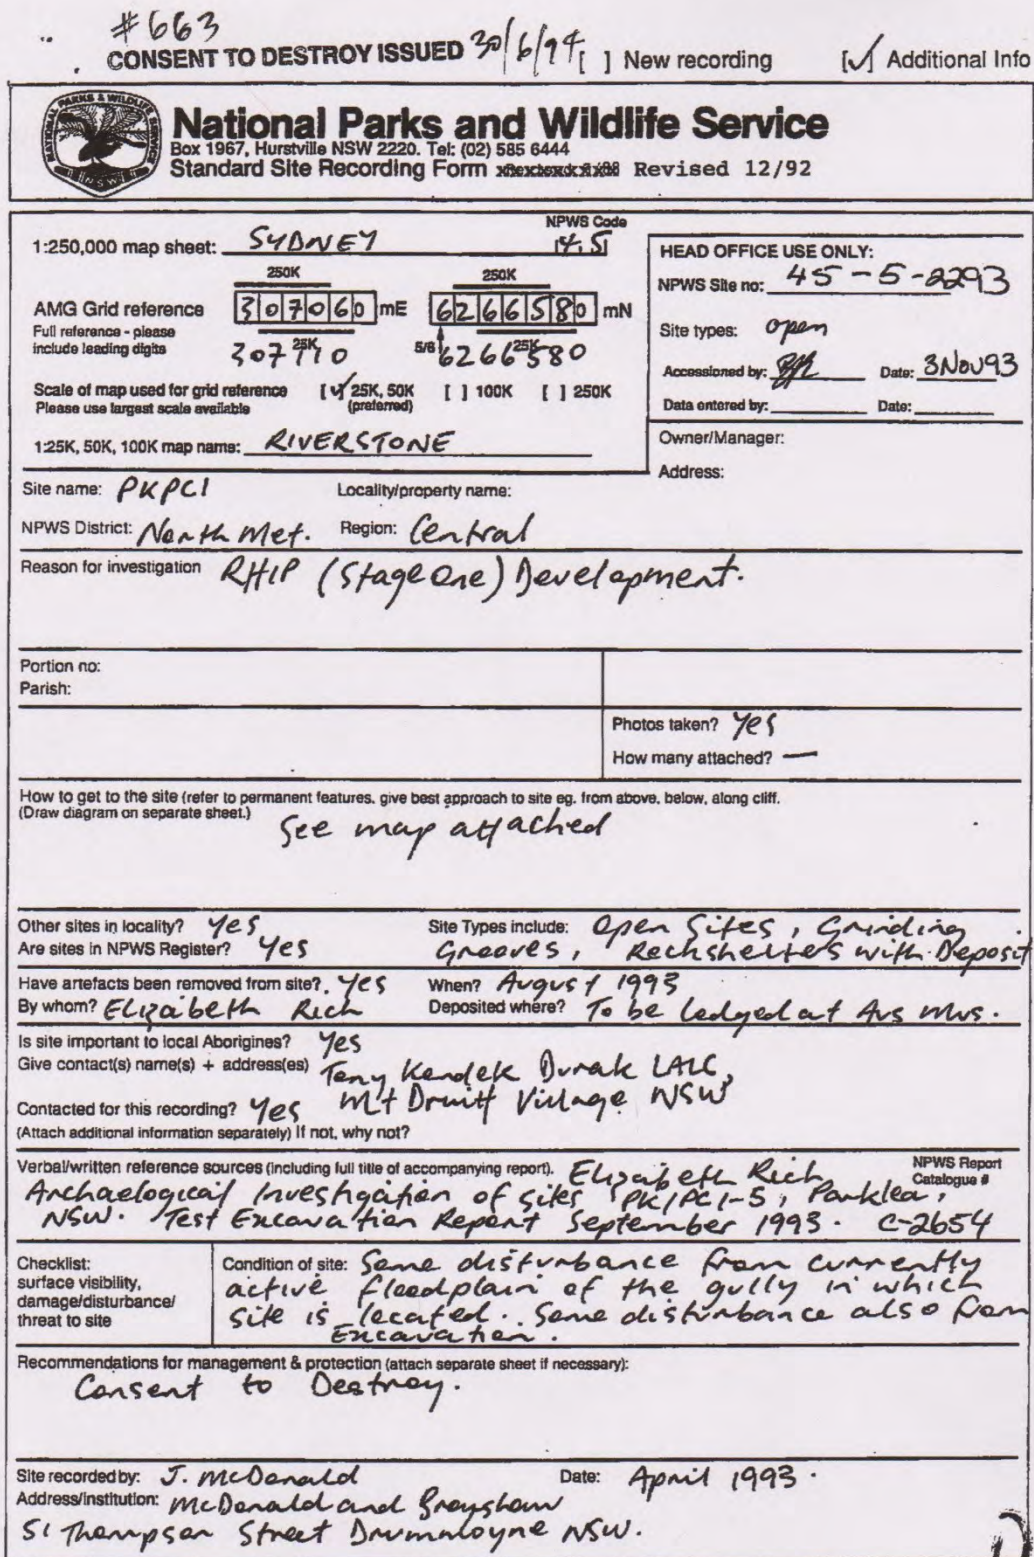 #663
CONSENT TO DESTROY ISSUED 30/6/94 [ ] New recording [✓] Additional Info
NATIONAL PARKS & WILDLIFE SERVICE
NSW
National Parks and Wildlife Service
Box 1967, Hurstville NSW 2220. Tel: (02) 585 6444
Standard Site Recording Form Revised 12/92
1:250,000 map sheet: SYDNEY NPWS Code
HEAD OFFICE USE ONLY:
NPWS Site no: 45-5-2293
250K 250K
AMG Grid reference 307060 mE 6266580 mN
Full reference - please
include leading digits
25K 5/6 25K
307110 6266580
Site types: open
Accessioned by: Date: 3Nov93
Scale of map used for grid reference [✓] 25K, 50K [ ] 100K [ ] 250K
Please use largest scale available (preferred)
Data entered by: Date:
1:25K, 50K, 100K map name: RIVERSTONE
Owner/Manager:
Address:
Site name: PKPC1 Locality/property name:
NPWS District: North Met. Region: Central
Reason for investigation RHIP (Stage One) Development.
Portion no:
Parish:
Photos taken? Yes
How many attached? —
How to get to the site (refer to permanent features, give best approach to site eg. from above, below, along cliff.
(Draw diagram on separate sheet.)
See map attached
Other sites in locality? Yes Site Types include: Open Sites, Grinding
Are sites in NPWS Register? Yes Grooves, Rockshelters with Deposit
Have artefacts been removed from site? Yes When? August 1993
By whom? Elizabeth Rich Deposited where? To be lodged at Aus Mus.
Is site important to local Aborigines? Yes
Give contact(s) name(s) + address(es) Tony Kondek Durak LALC,
Mt Druitt Village NSW
Contacted for this recording? Yes
(Attach additional information separately) If not, why not?
Verbal/written reference sources (including full title of accompanying report). Elizabeth Rich NPWS Report
Catalogue #
Archaelogical Investigation of sites PK/PC1-5, Parklea,
NSW. Test Excavation Report September 1993. C-2654
Checklist:
surface visibility,
damage/disturbance/
threat to site
Condition of site: Some disturbance from currently
active floodplain of the gully in which
site is located. Some disturbance also from
Excavation.
Recommendations for management & protection (attach separate sheet if necessary):
Consent to Destroy.
Site recorded by: J. McDonald Date: April 1993.
Address/institution: McDonald and Brayshaw
51 Thompson Street Drummoyne NSW.